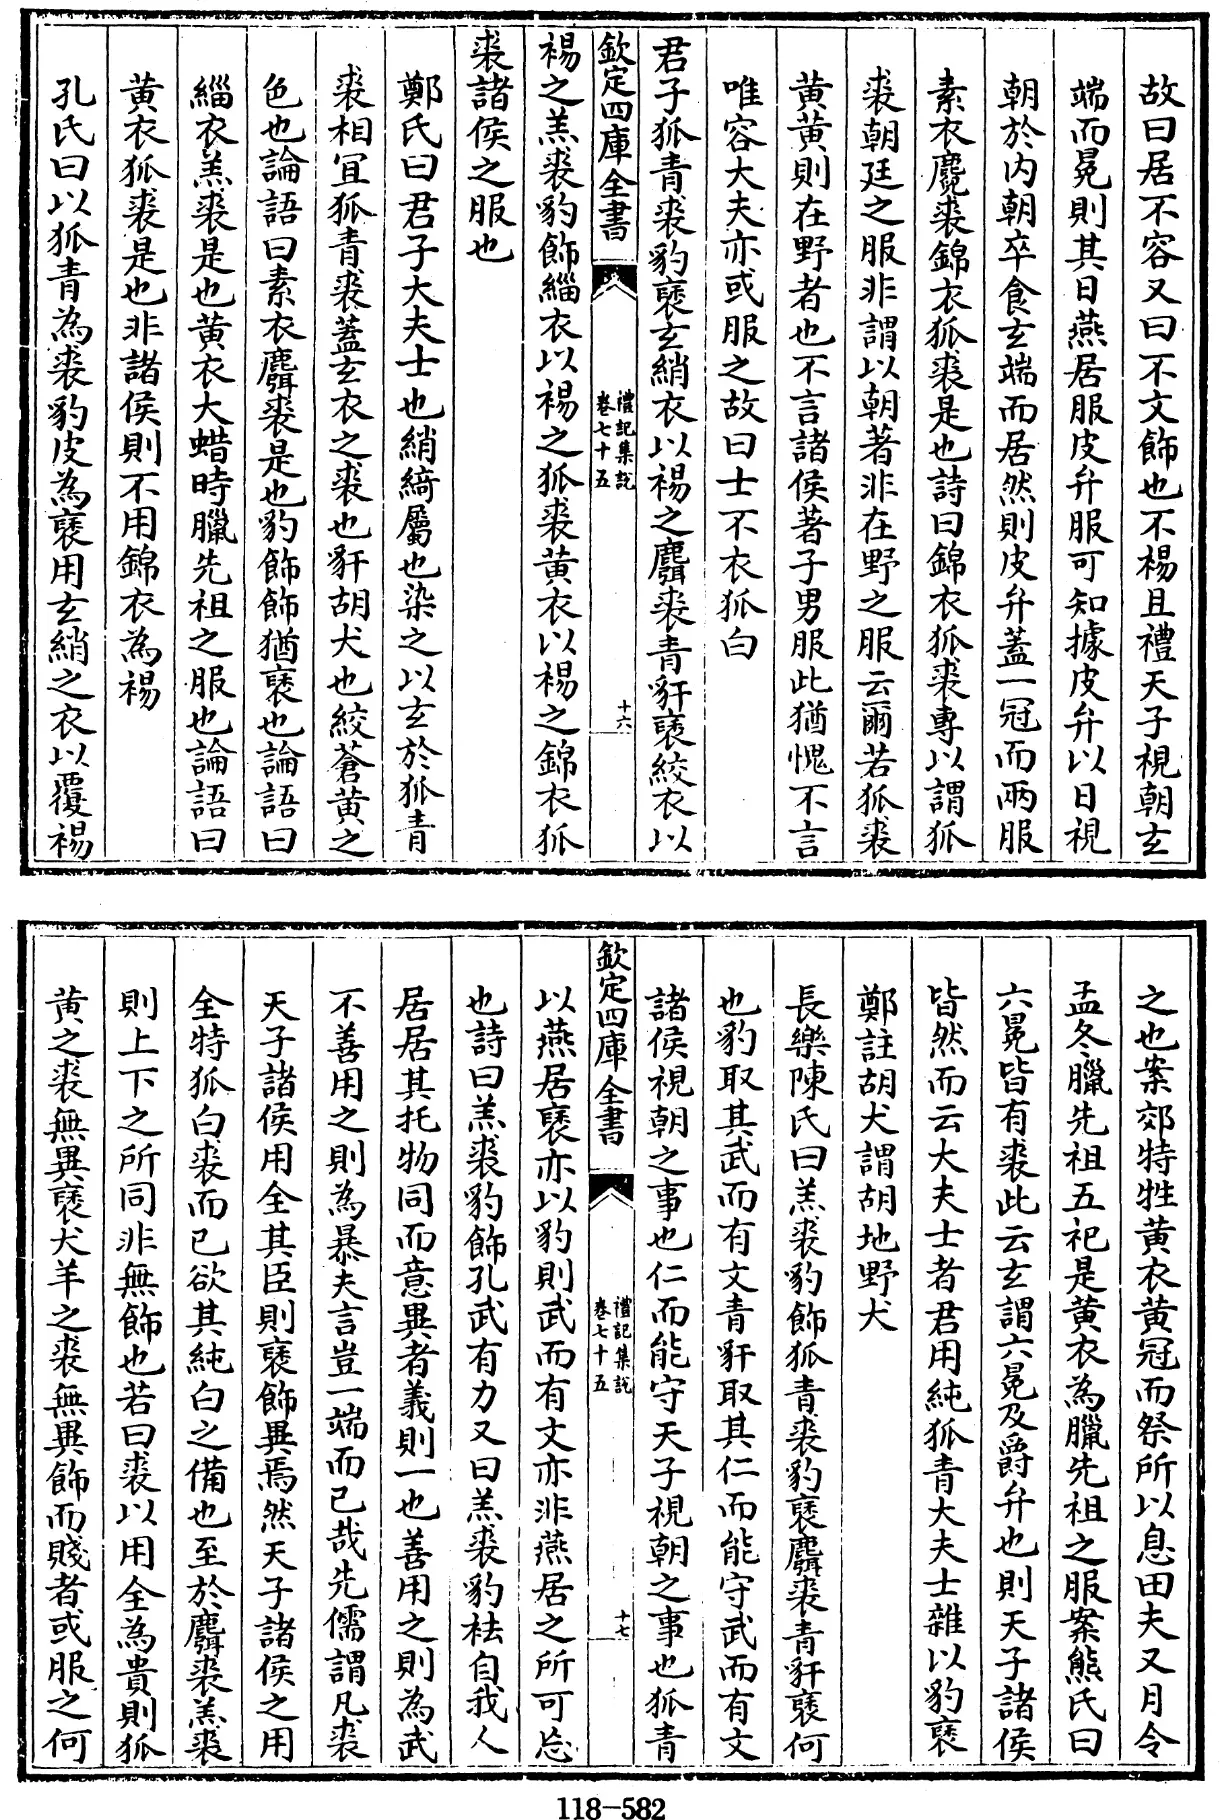 故曰居不容又曰不文飾也不裼且禮天子視朝玄
端而冕則其日燕居服皮弁服可知據皮弁以日視
朝於内朝卒食玄端而居然則皮弁蓋一冠而兩服
素衣麑裘錦衣狐裘是也詩曰錦衣狐裘專以謂狐
裘朝廷之服非謂以朝著非在野之服云爾若狐裘
黄黄則在野者也不言諸侯著子男服此猶愧不言
唯容大夫亦或服之故曰士不衣狐白
君子狐青裘豹褎玄綃衣以裼之麛裘青豻褎絞衣以
欽定四庫全書
禮記集說
卷七十五
十六
裼之羔裘豹飾緇衣以裼之狐裘黄衣以裼之錦衣狐
裘諸侯之服也
鄭氏曰君子大夫士也綃綺屬也染之以玄於狐青
裘相宜狐青裘蓋玄衣之裘也豻胡犬也絞蒼黄之
色也論語曰素衣麛裘是也豹飾飾猶褎也論語曰
緇衣羔裘是也黄衣大蜡時臘先祖之服也論語曰
黄衣狐裘是也非諸侯則不用錦衣為裼
孔氏曰以狐青為裘豹皮為褎用玄綃之衣以覆裼
之也案郊特牲黄衣黄冠而祭所以息田夫又月令
孟冬臘先祖五祀是黄衣為臘先祖之服案熊氏曰
六冕皆有裘此云玄謂六冕及爵弁也則天子諸侯
皆然而云大夫士者君用純狐青大夫士雜以豹褎
鄭註胡犬謂胡地野犬
長樂陳氏曰羔裘豹飾狐青裘豹褎麛裘青豻褎何
也豹取其武而有文青豻取其仁而能守武而有文
諸侯視朝之事也仁而能守天子視朝之事也狐青
欽定四庫全書
禮記集說
卷七十五
十七
以燕居褎亦以豹則武而有文亦非燕居之所可忘
也詩曰羔裘豹飾孔武有力又曰羔裘豹袪自我人
居居其托物同而意異者義則一也善用之則為武
不善用之則為暴夫言豈一端而已哉先儒謂凡裘
天子諸侯用全其臣則褎飾異焉然天子諸侯之用
全特狐白裘而已欲其純白之備也至於麛裘羔裘
則上下之所同非無飾也若曰裘以用全為貴則狐
黄之裘無異褎犬羊之裘無異飾而賤者或服之何
118-582